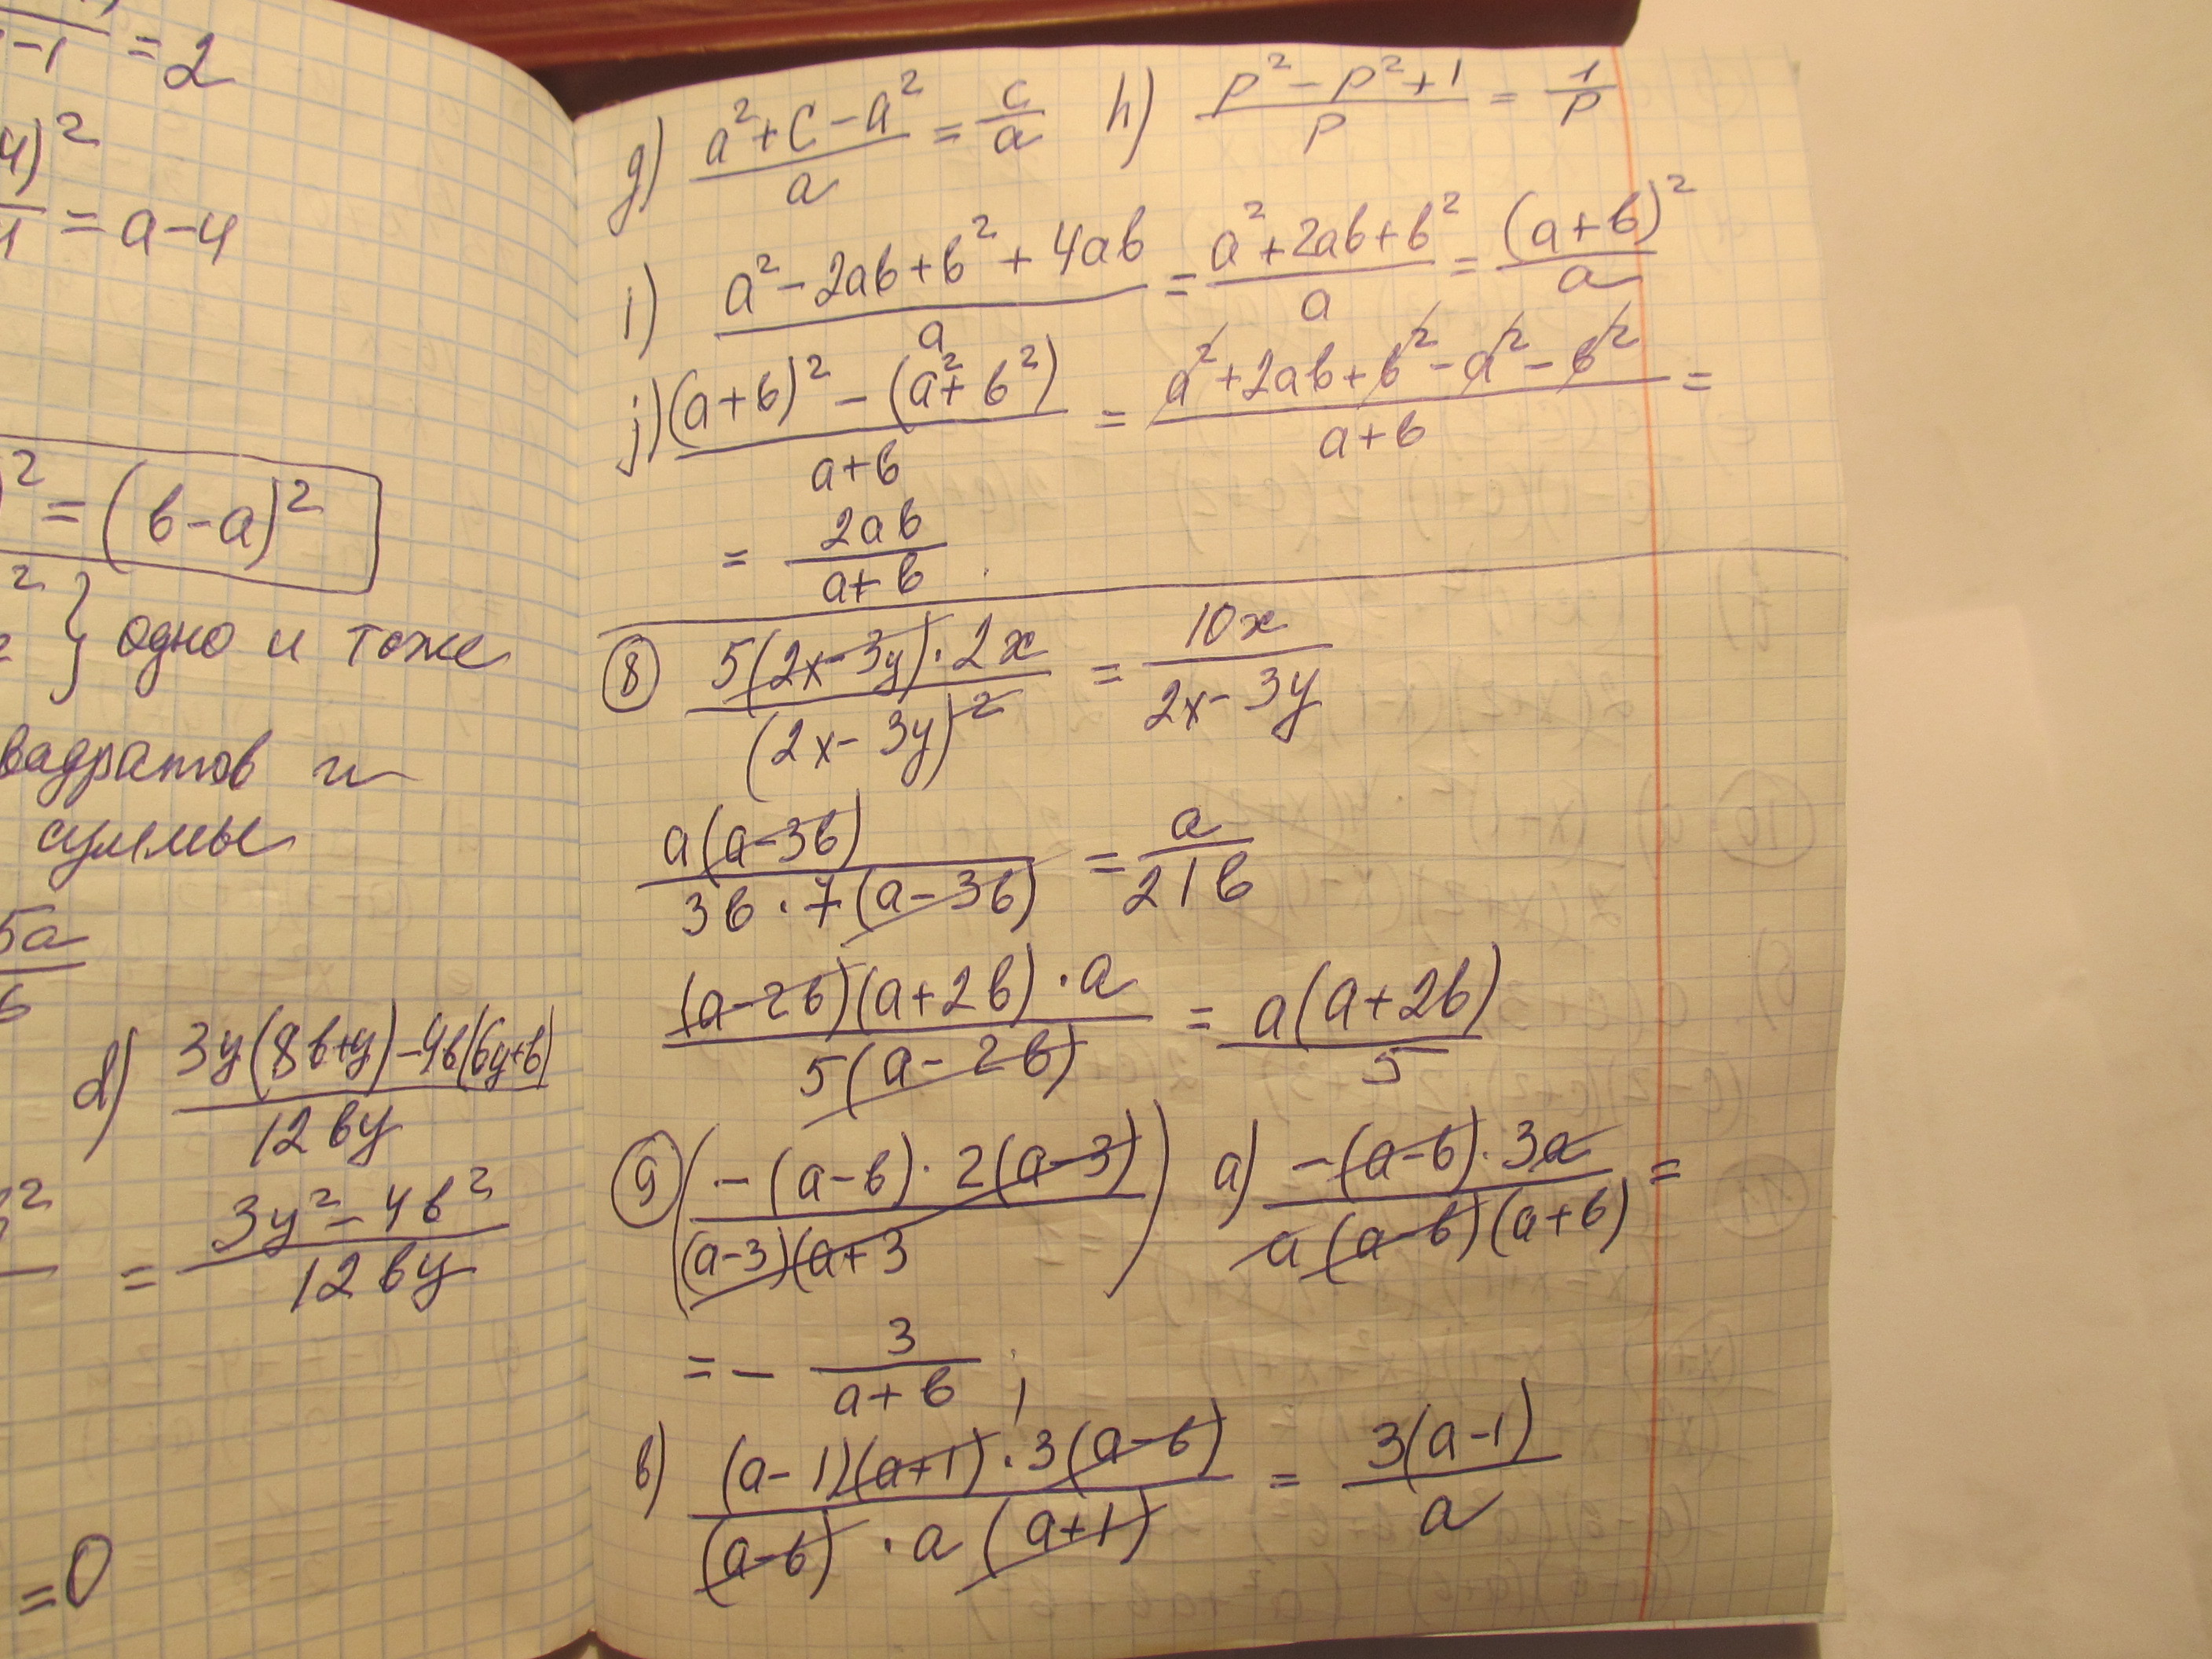 -1 = 2
4)²
= a-4
² = (в-a)²
² } одно и тоже
вадратов и
суммы
5a
d) (3y(8в+y)-4в(6y+в))/(12вy)
= (3y²-4в²)/(12вy)
=0
g) (a²+c-a²)/a = c/a h) (p²-p²+1)/p = 1/p
i) (a²-2aв+в²+4aв)/a = (a²+2aв+в²)/a = (a+в)²/a
j) ((a+в)²-(a²+в²))/(a+в) = (a²+2aв+в²-a²-в²)/(a+в) =
= 2aв/(a+в)
8 (5(2x-3y)·2x)/(2x-3y)² = 10x/(2x-3y)
a(a-3в)/(3в·7(a-3в)) = a/21в
((a-2в)(a+2в)·a)/(5(a-2в)) = a(a+2в)/5
9 (-(a-в)·2(a-3)/(a-3)(a+3) a) (-(a-в)·3a)/(a(a-в)(a+в)) =
= - 3/(a+в) ;
в) ((a-1)(a+1)·3(a-в))/((a-в)·a(a+1)) = 3(a-1)/a